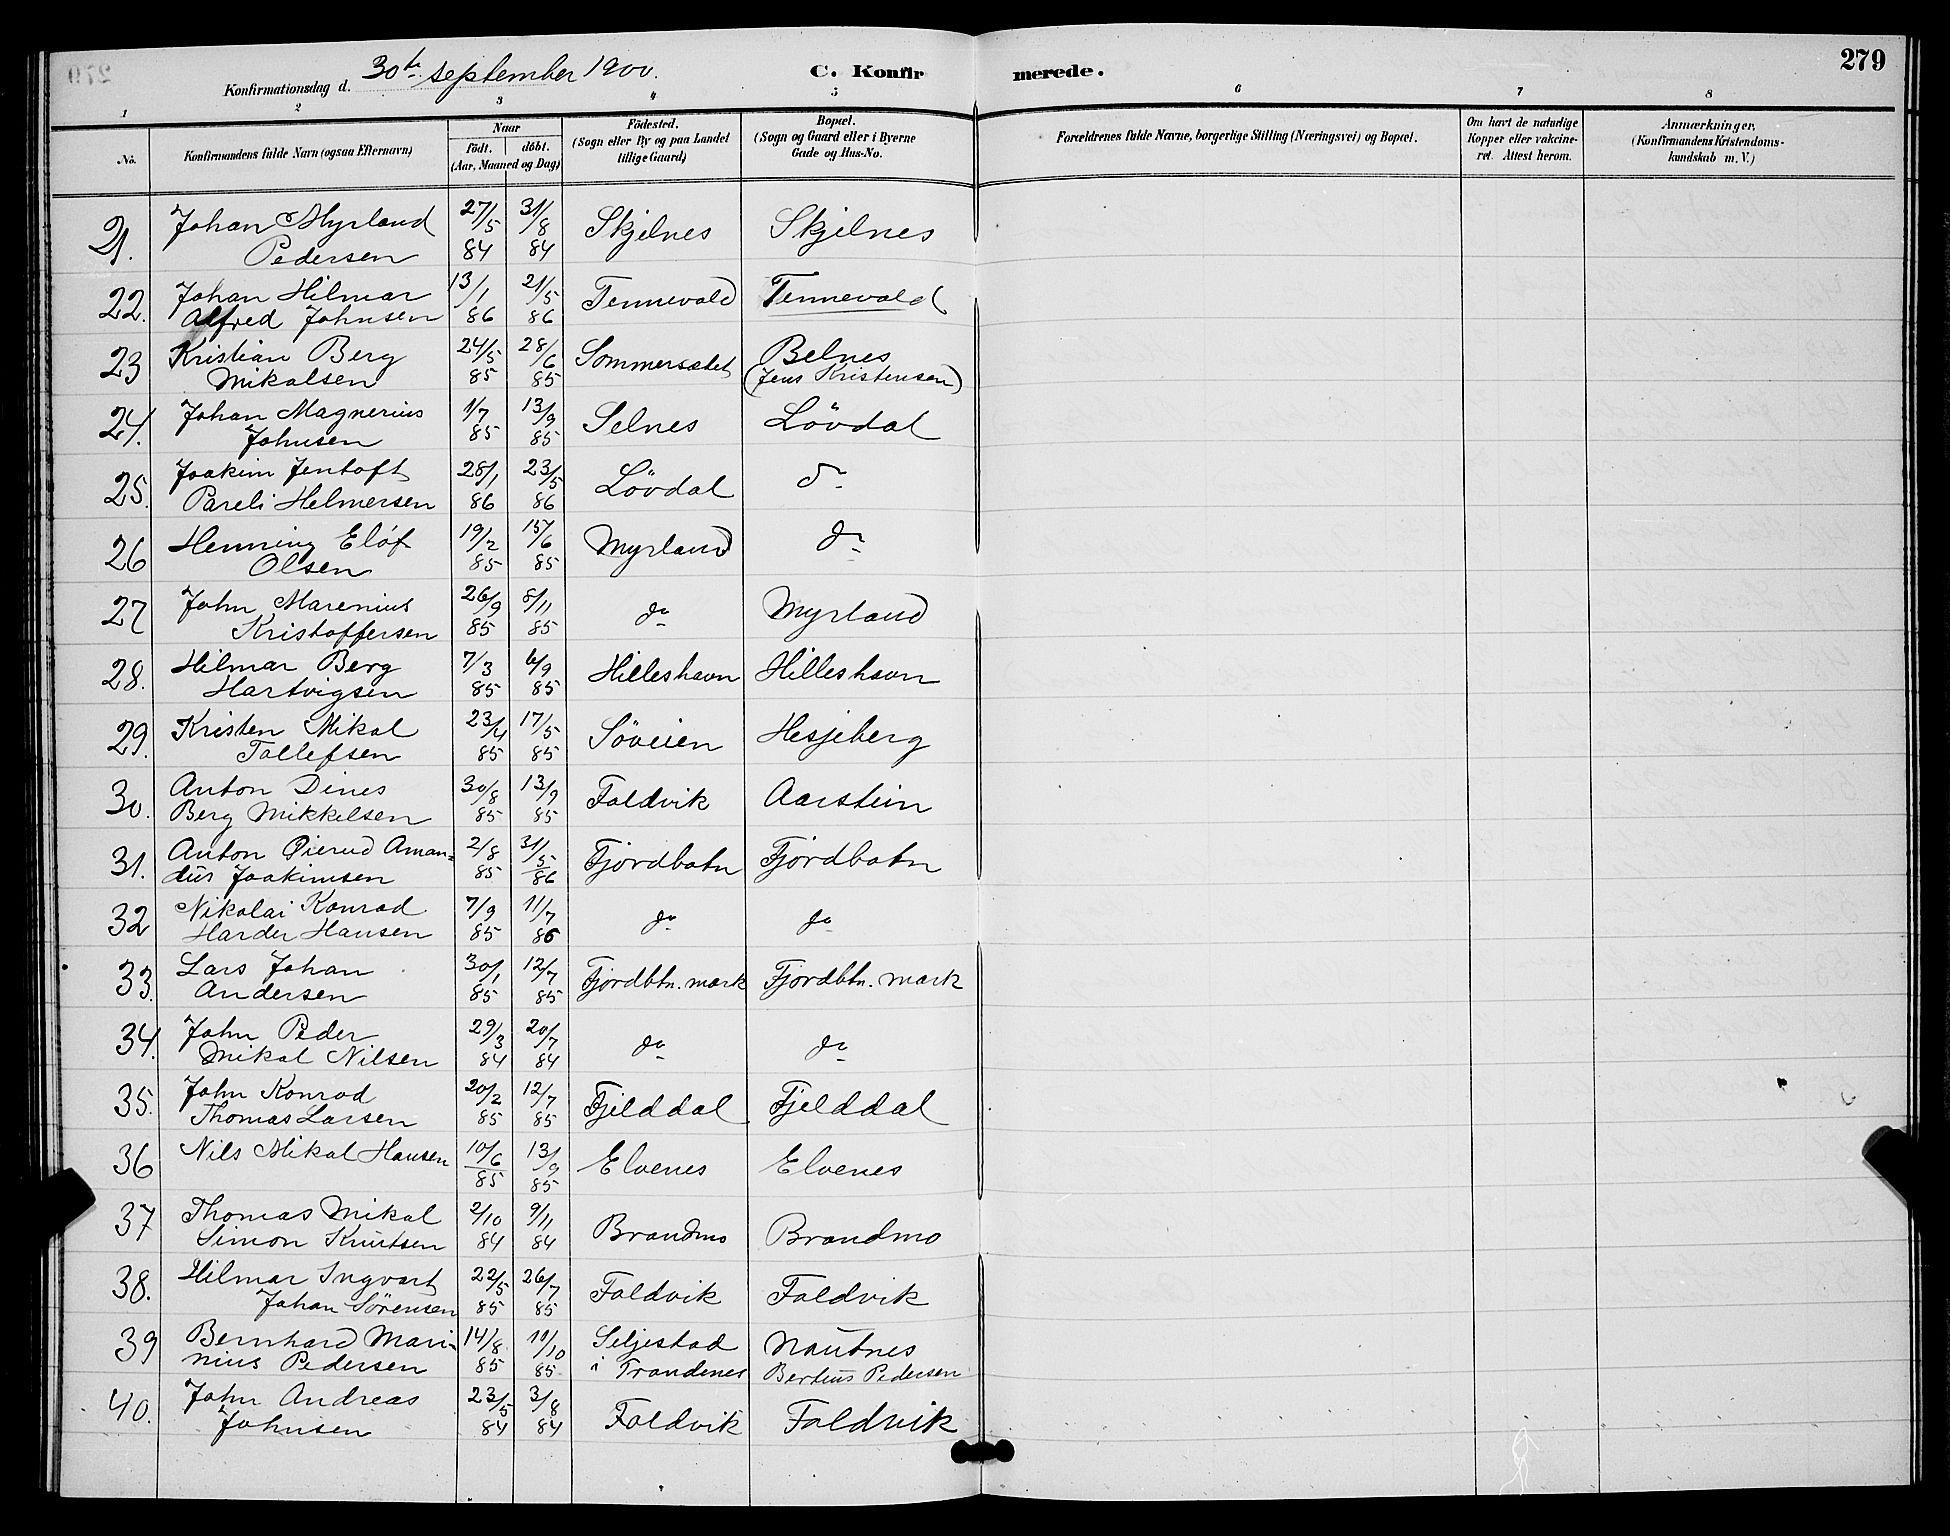 Konfirmationsdag d. 30te september 1900.
C. Konfirmerede.
279
1 2 3 4 5 6 7 8
No.
Konfirmandens fulde Navn (ogsaa Efternavn)
Naar
födt. döbt.
(Aar, Maaned og Dag)
Födested.
(Sogn eller By og paa Landet
tillige Gaard)
Bopæl.
(Sogn og Gaard eller i Byerne
Gade og Hus-No.
Forældrenes fulde Navne, borgerlige Stilling (Næringsvei) og Bopæl.
Om havt de naturlige
Kopper eller vakcine-
ret. Attest herom.
Anmærkninger,
(Konfirmandens Kristendoms-
kundskab m. V.)
21. Johan Myrland 27/5 31/8 Skjelnes Skjelnes
Pedersen 84 84
22. Johan Hilmar 13/1 21/5 Tennevald Tennevald
Alfred Johnsen 86 86
23 Kristian Berg 24/5 28/6 Sommersætet Belnes
Mikalsen 85 85 (Jens Kristensen)
24. Johan Magnerius 1/7 13/9 Selnes Lövdal
Johnsen 85 85
25. Joakim Jentoft 28/1 23/5 Lövdal do
Pareli Helmersen 86 86
26 Henning Elöf 19/2 /6 Myrland do
Olsen 85 85
27 John Marenius 26/9 8/11 do Myrland
Kristoffersen 85 85
28. Hilmar Berg 7/3 6/9 Hilleshavn Hilleshavn
Hartvigsen 85 85
29. Kristen Mikal 23/4 17/5 Söveien Hesjeberg
Tollefsen 85 85
30. Anton Dines 30/8 13/9 Foldvik Aarstein
Berg Mikkelsen 85 85
31. Anton Öierud Aman= 2/8 31/5 Fjordbotn Fjordbotn
dus Joakimsen 85 86
32 Nikolai Konrad 7/9 11/7 do do
Harder Hansen 85 86
33. Lars Johan 30/1 12/7 Fjordbtn. mark Fjordbtn. mark
Andersen 85 85
34. John Peder 29/3 20/7 do do
Mikal Nilsen 84 84
35. John Konrad 20/2 12/7 Fjelddal Fjelddal
Thomas Larsen 85 85
36 Nils Mikal Hansen 10/6 13/9 Elvenes Elvenes
85 85
37 Thomas Mikal 2/10 9/11 Brandmo Brandmo
Simon Knutsen 84 84
38. Hilmar Ingvart 22/5 26/7 Foldvik Foldvik
Johan Sörensen 85 85
39 Bernhard Mari- 14/8 11/10 Seljestad Nautnes
nius Pedersen 85 85 i Trondenes Berteus Pedersen
40. John Andreas 23/5 3/8 Foldvik Foldvik
Johnsen 84 84